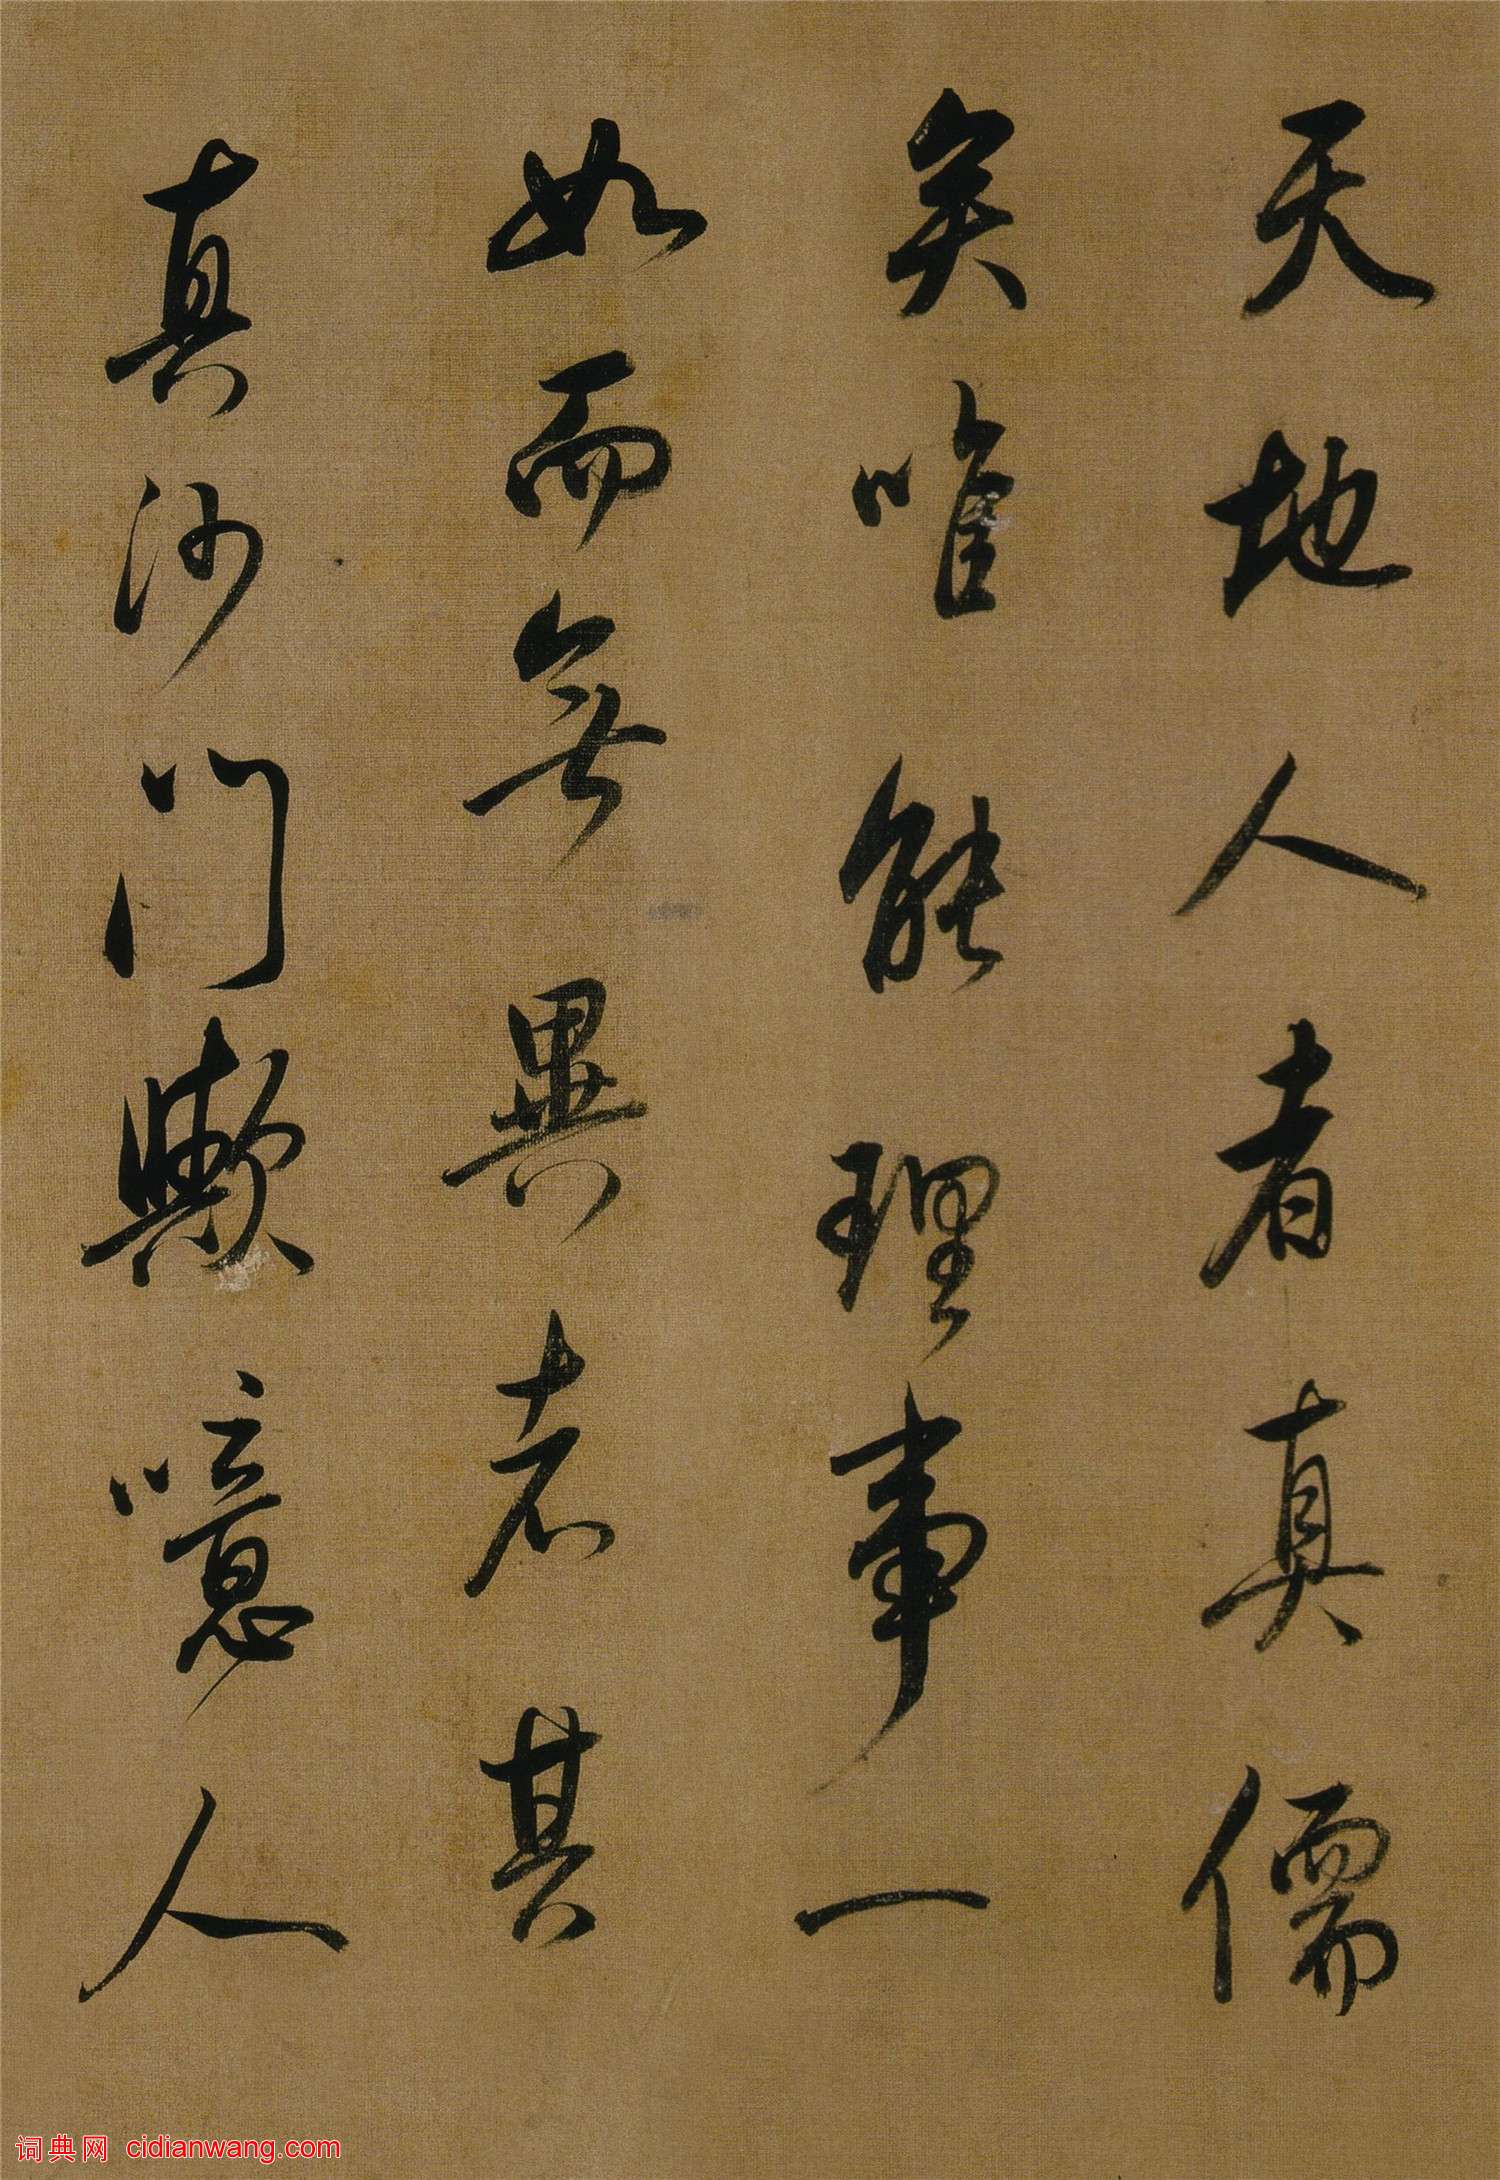 天地人者真儒
矣唯能理事一
如而無異者其
真沙門歟噫人
词典网 cidianwang.com